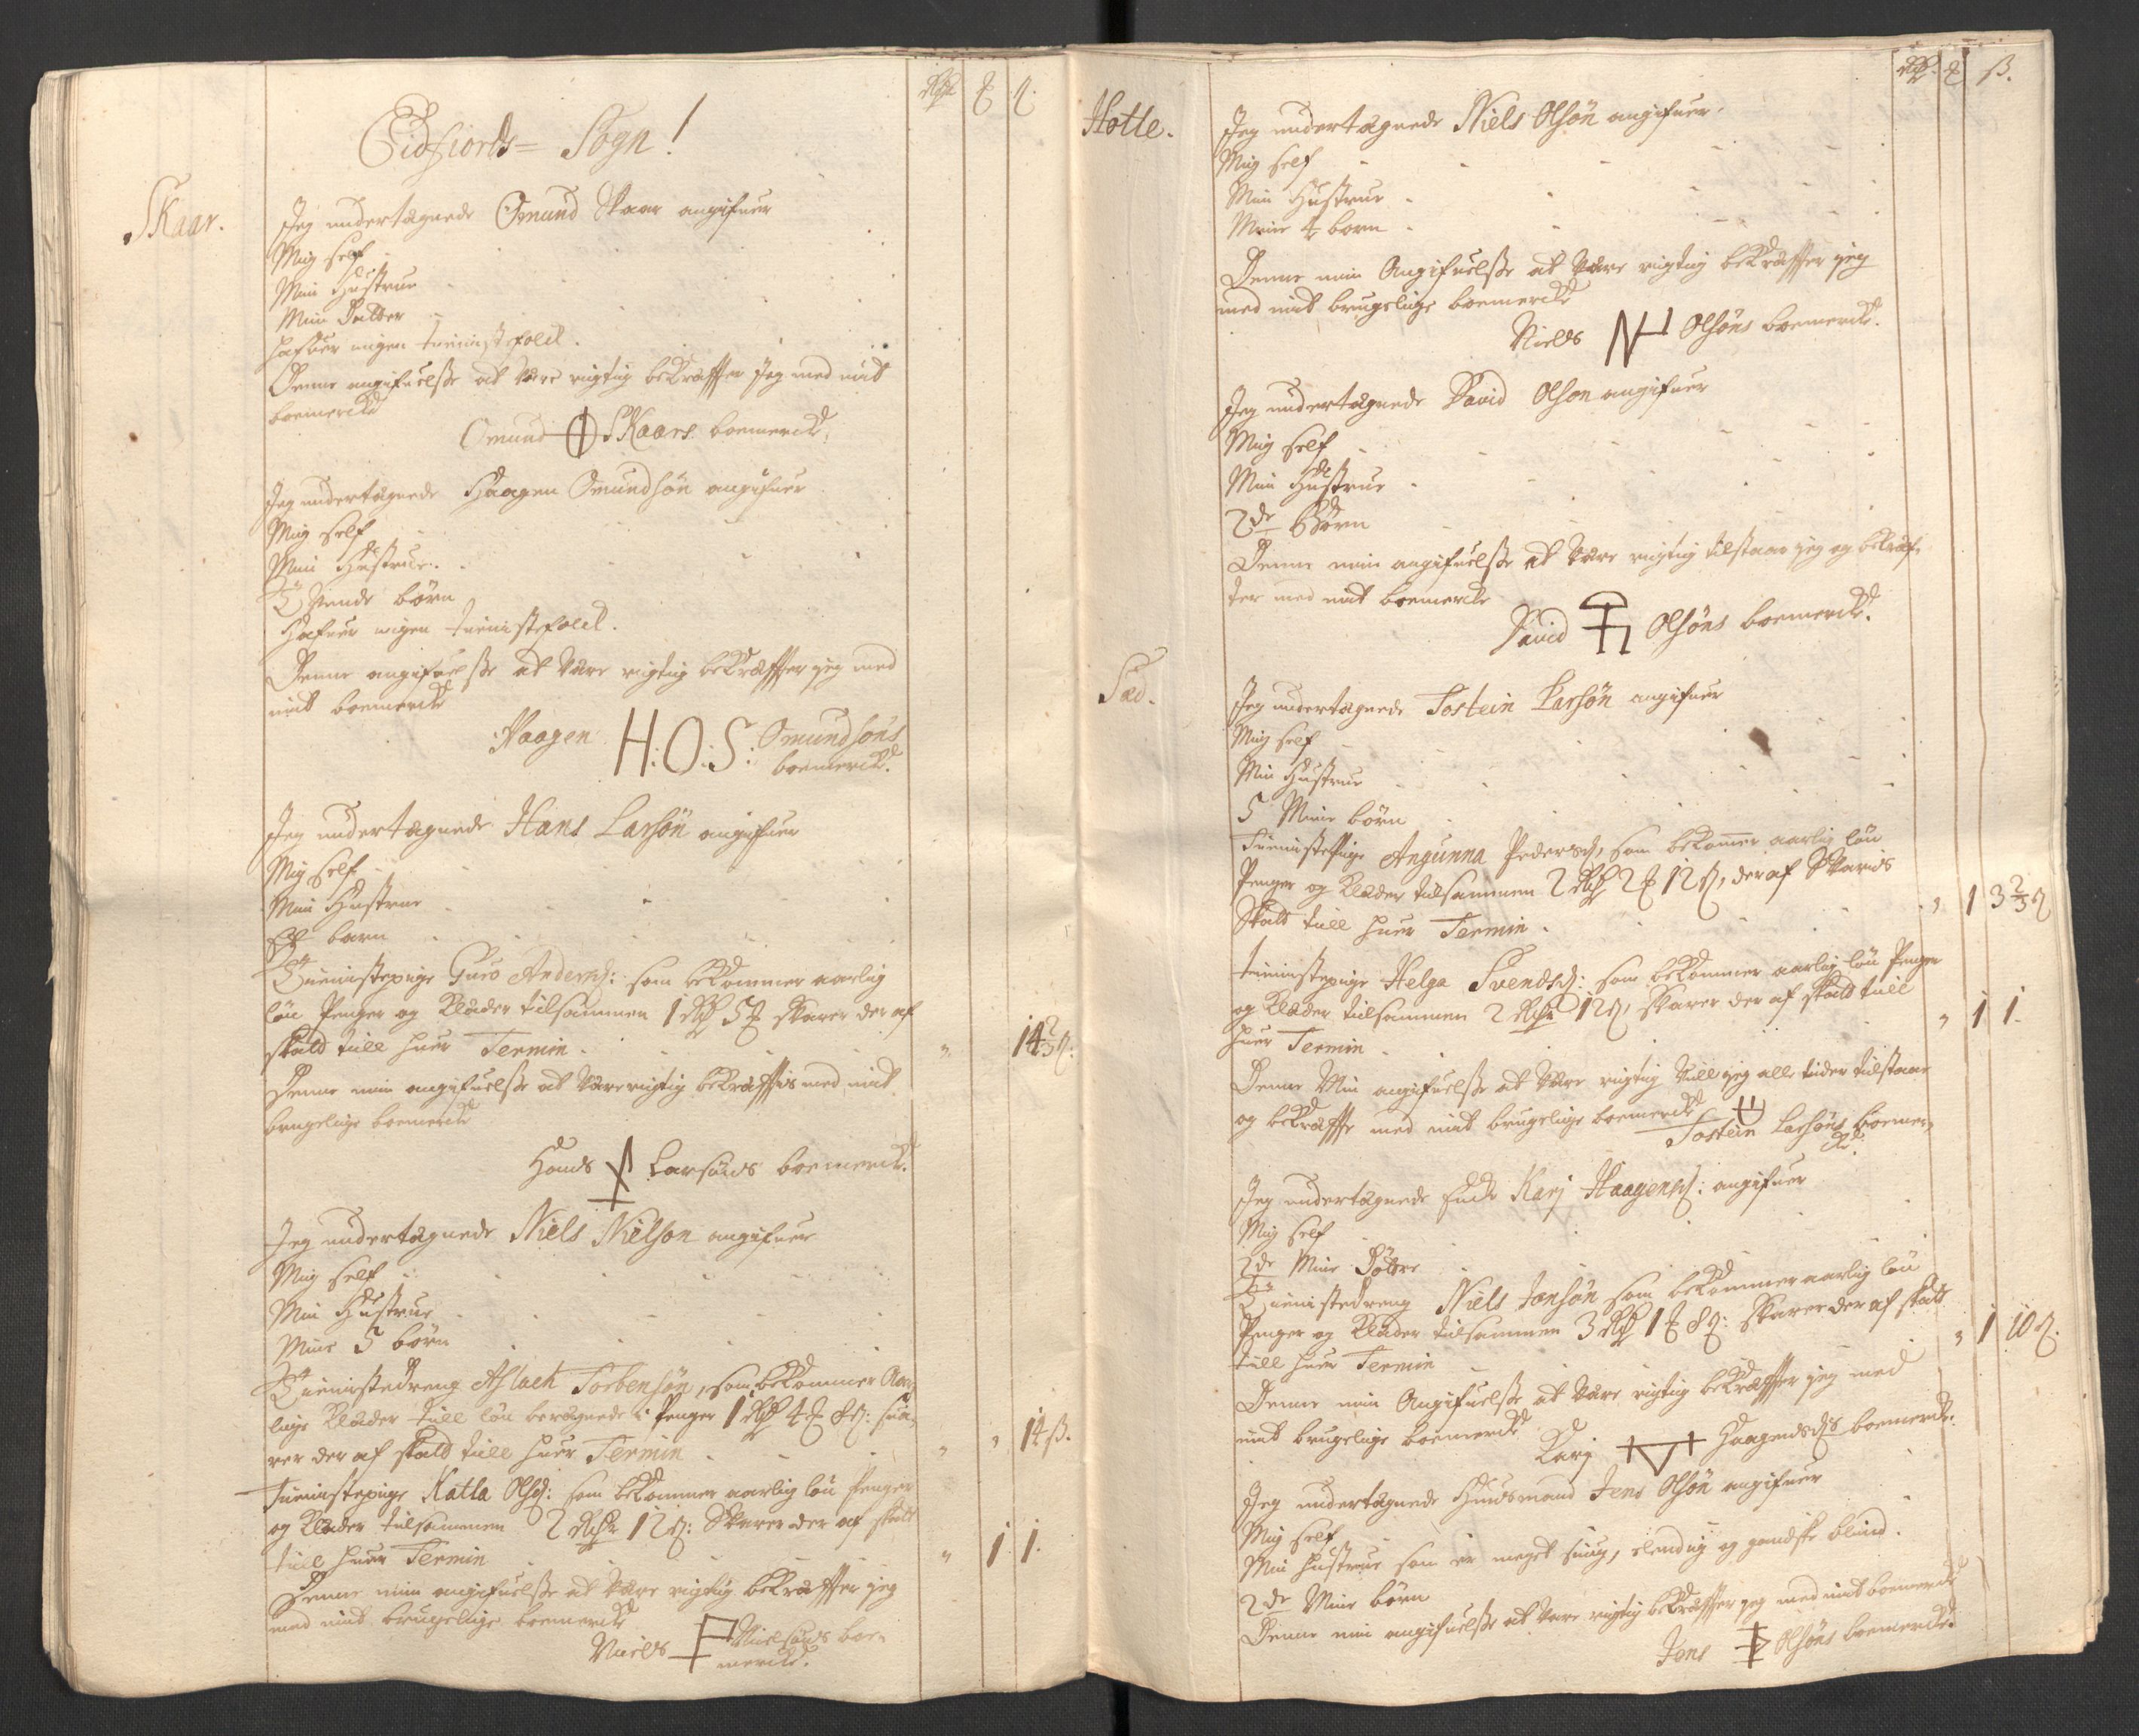 Rdr ƶ ß.
Eidfiords= Sogn!
Skaar.
Jeg undertægnede Omund Skaar angifuer
Mig self
Min Hustrue
Min Datter
hafver ingen tienistefolck.
Denne angifuelsse at være rigtig bekræffter Jeg med mit
boemercke
Omund Skaars boemercke.
Jeg undertægnede Haagen Omundsøn angifuer
Mig self
Min Hustrue
Tvende børn
Hafuer ingen tienistefolck.
Denne angifuelsse at være rigtig bekræffter jeg med
mit boemercke
Haagen H:O:S: Omundsøns
boemercke.
Jeg undertægnede Hans Larsøn angifuer
Mig self
Min Hustrue
Et barn
Tienistepige Guro Andersd: som bekommer aarlig
løn Penger og Klæder tilsammen 1 Rdr 5 ƶ svarer der af
skatt till huer Termin 14 2/3 ß:
Denne min angifuelsse at være rigtig bekræfftis med mit
brugelige boemercke
Hands Larsøns boemercke.
Jeg undertægnede Niels Nielsøn angifuer
Mig self
Min Hustrue
Mine 5 børn
Tienistedreng Aslach Torbensøn, som bekommer Aar-
lige Klæder till løn beregnede i Penger 1 Rdr 4 ƶ 8 ß: sva-
rer der af skatt till huer Termin 14 ß.
Tienistepige Katla Olsd: som bekommer aarlig løn Penger
og Klæder tilsammen 2 Rdr 12 ß: Svarer der af skatt
till huer Termin 1 1.
Denne min angifuelsse at være rigtig bekræffter jeg
med mit brugelige boemercke
Niels Nielsøns boe-
mercke.
Rdr ƶ ß.
Hotle.
Jeg undertægnede Niels Olsøn angifuer
Mig self
Min Hustrue
Mine 4 børn
Denne min Angifuelsse at være rigtig bekræffter jeg
med mit brugelige boemercke
Niels Olsøns boemercke.
Jeg undertægnede David Olsøn angifuer
Mig self
Min Hustrue
2de Børn
Denne min angifuelsse at være rigtig tilstaar jeg og bekræf-
ter med mit boemercke
David Olsøns boemercke.
Sæd.
Jeg undertægnede Tostein Larsøn angifuer
Mig self
Min Hustrue
5 Mine børn
Tienistepige Angunna Pedersd, som bekomer aarlig løn
Penger og Klæder tilsammen 2 Rdr 2 ƶ 12 ß, der af Svaris
Skatt till huer Termin 1 3 2/3 ß
tienistepige Helga Svendsd: som bekommer aarlig løn Penger
og Klæder tilsammen 2 Rdr 12 ß, svarer der af skatt till
huer Termin 1 1.
Denne Min angifuelsse at være rigtig vill jeg alle tider tilstaae
og bekræffte med mit brugelige boemercke
Tostein Larsøns boemer-
cke.
Jeg undertægnede Encke Karj Haagensd: angifuer
Mig self
2de Mine Døttre
Tienistedreng Niels Jonsøn som bekommer aarlig løn
Penger og Klæder tilsammen 3 Rdr 1 ƶ 8 ß: svarer der af skatt
till huer Termin 1 10 ß.
Denne min Angifuelsse at være rigtig bekræffter jeg med
mit brugelige boemercke
Karj Haagensds boemercke.
Jeg undertægnede Huusmand Jens Olsøn angifuer
Mig self
Min hustrue som er meget siug, elendig og gandske blind.
2de Mine børn
Denne min angifuelsse at være rigtig bekræffter jeg med mit boemercke
Jens Olsøns boemercke.